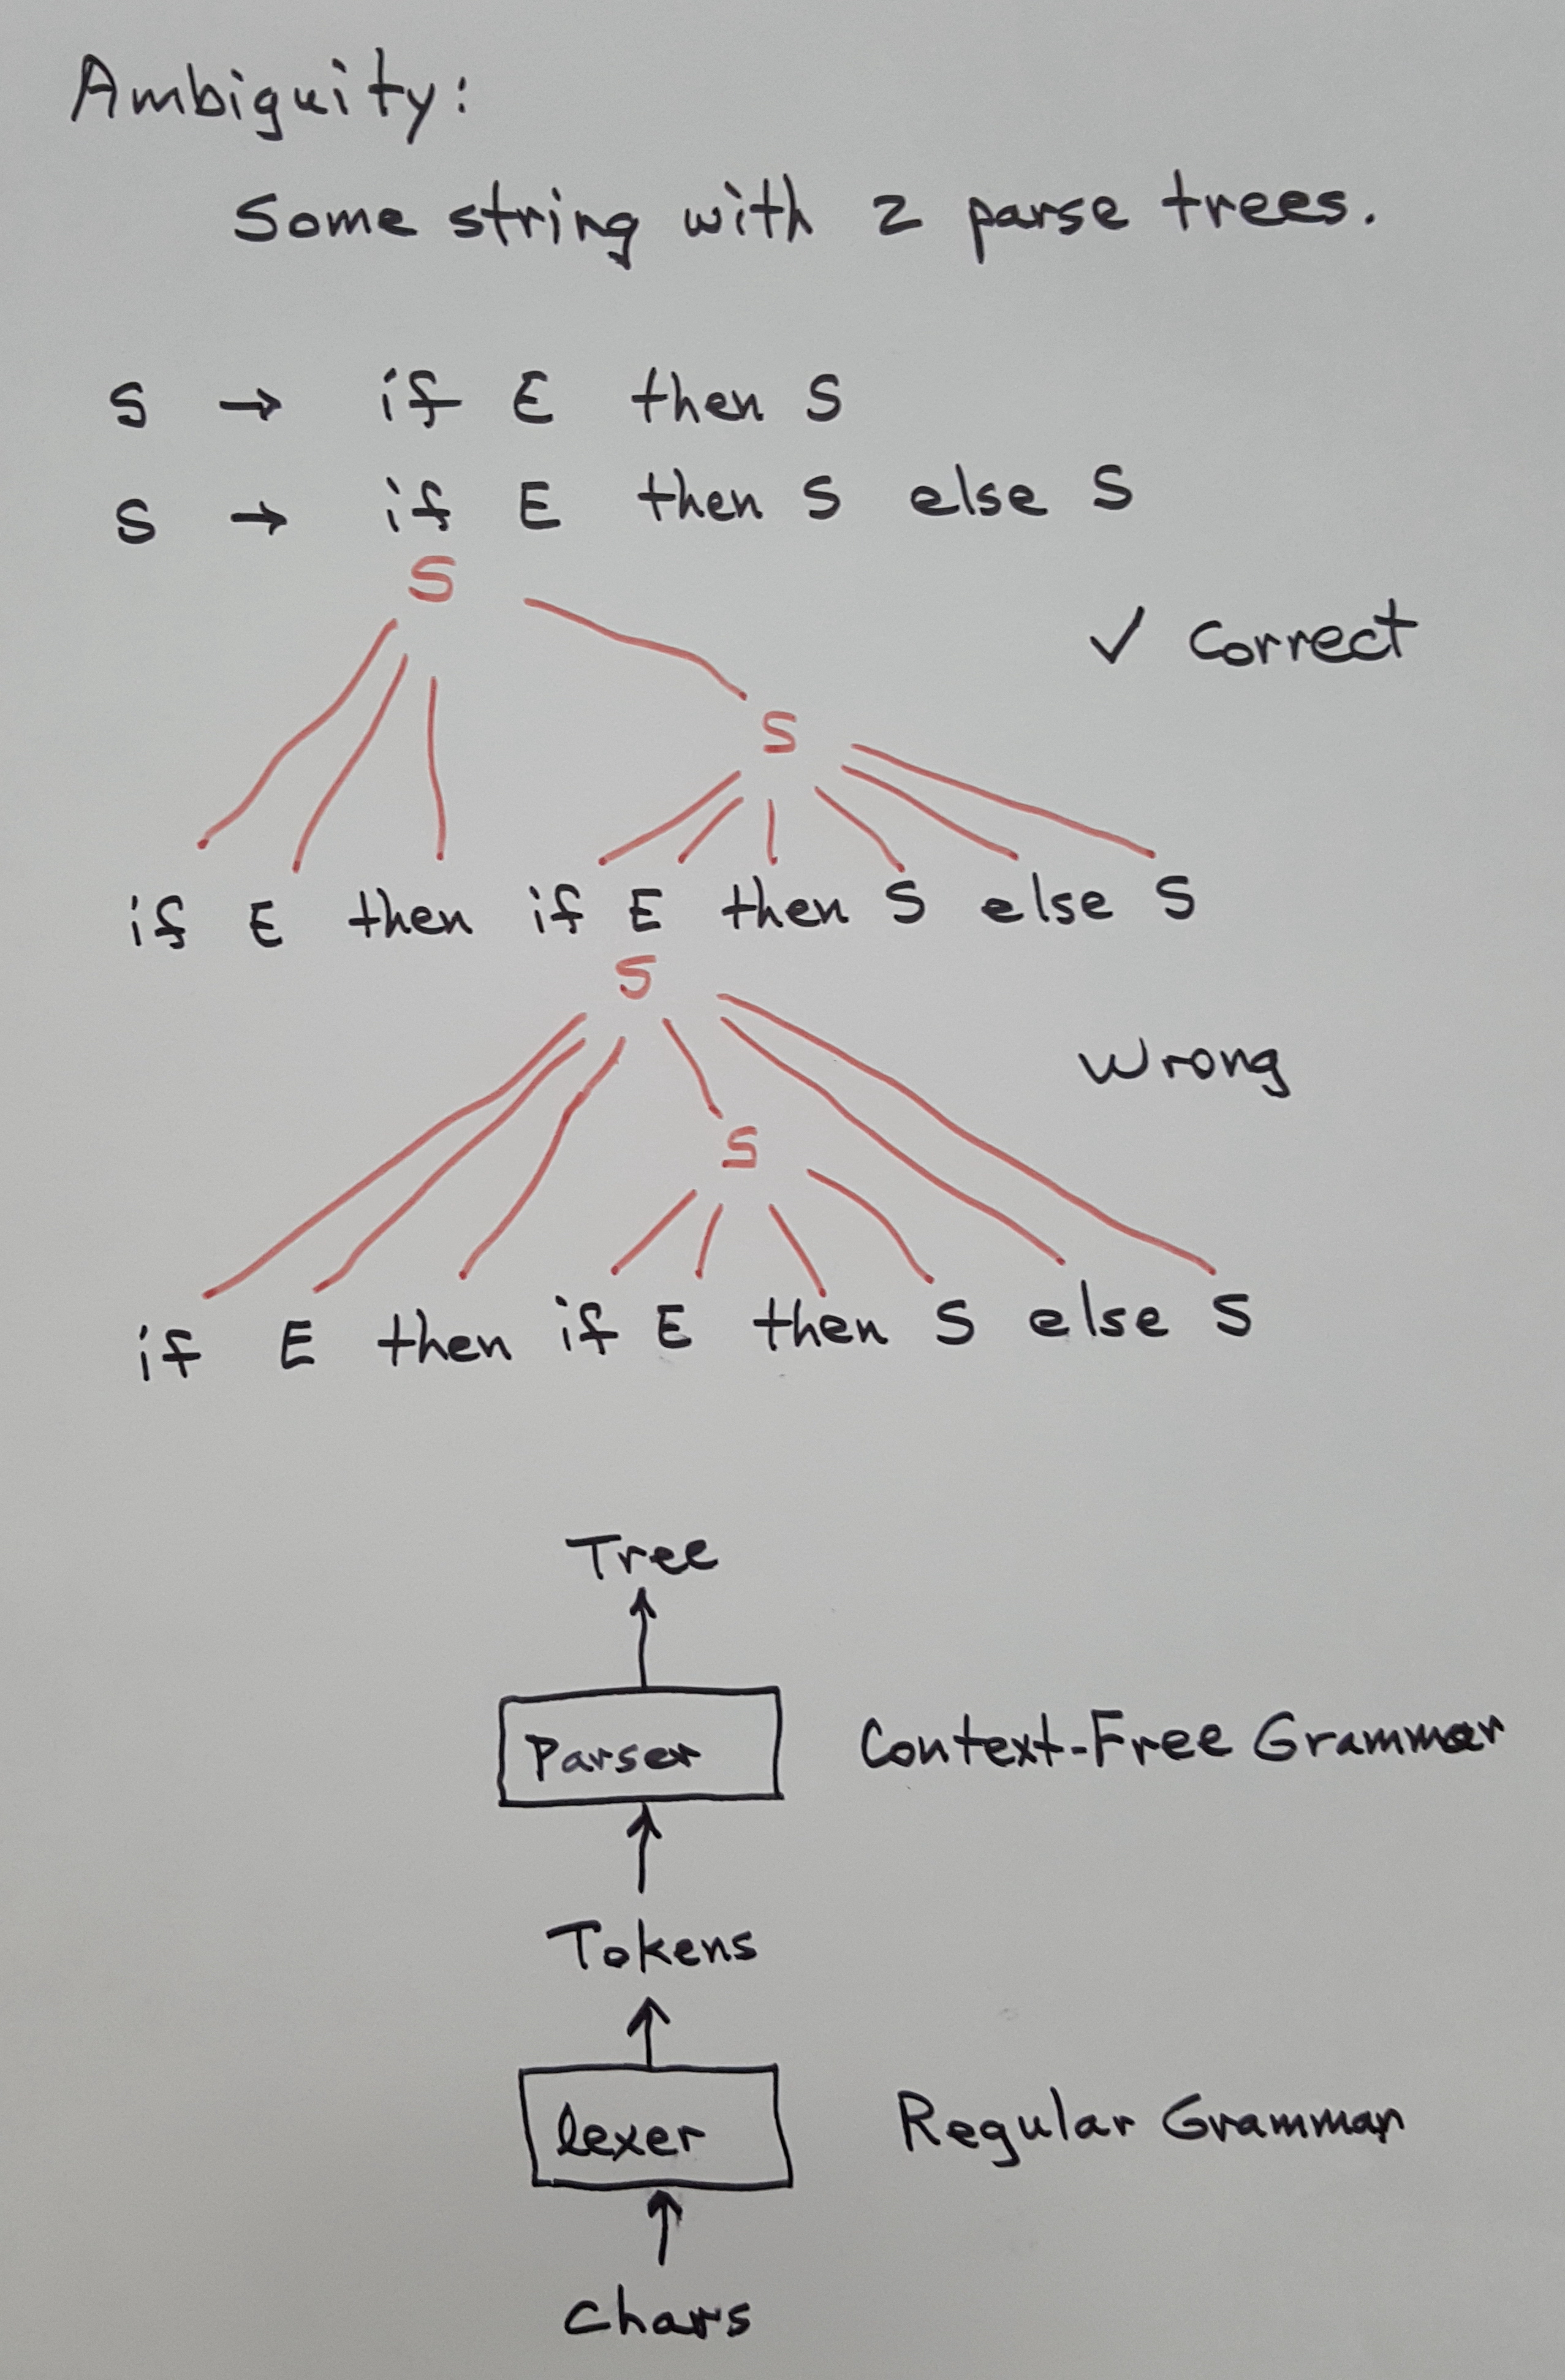 Ambiguity:
Some string with 2 parse trees.
S → if E then S
S → if E then S else S
S
✓ Correct
S
if E then if E then S else S
S
Wrong
S
if E then if E then S else S
Tree
Parser
Context-Free Grammar
Tokens
lexer
Regular Grammar
chars